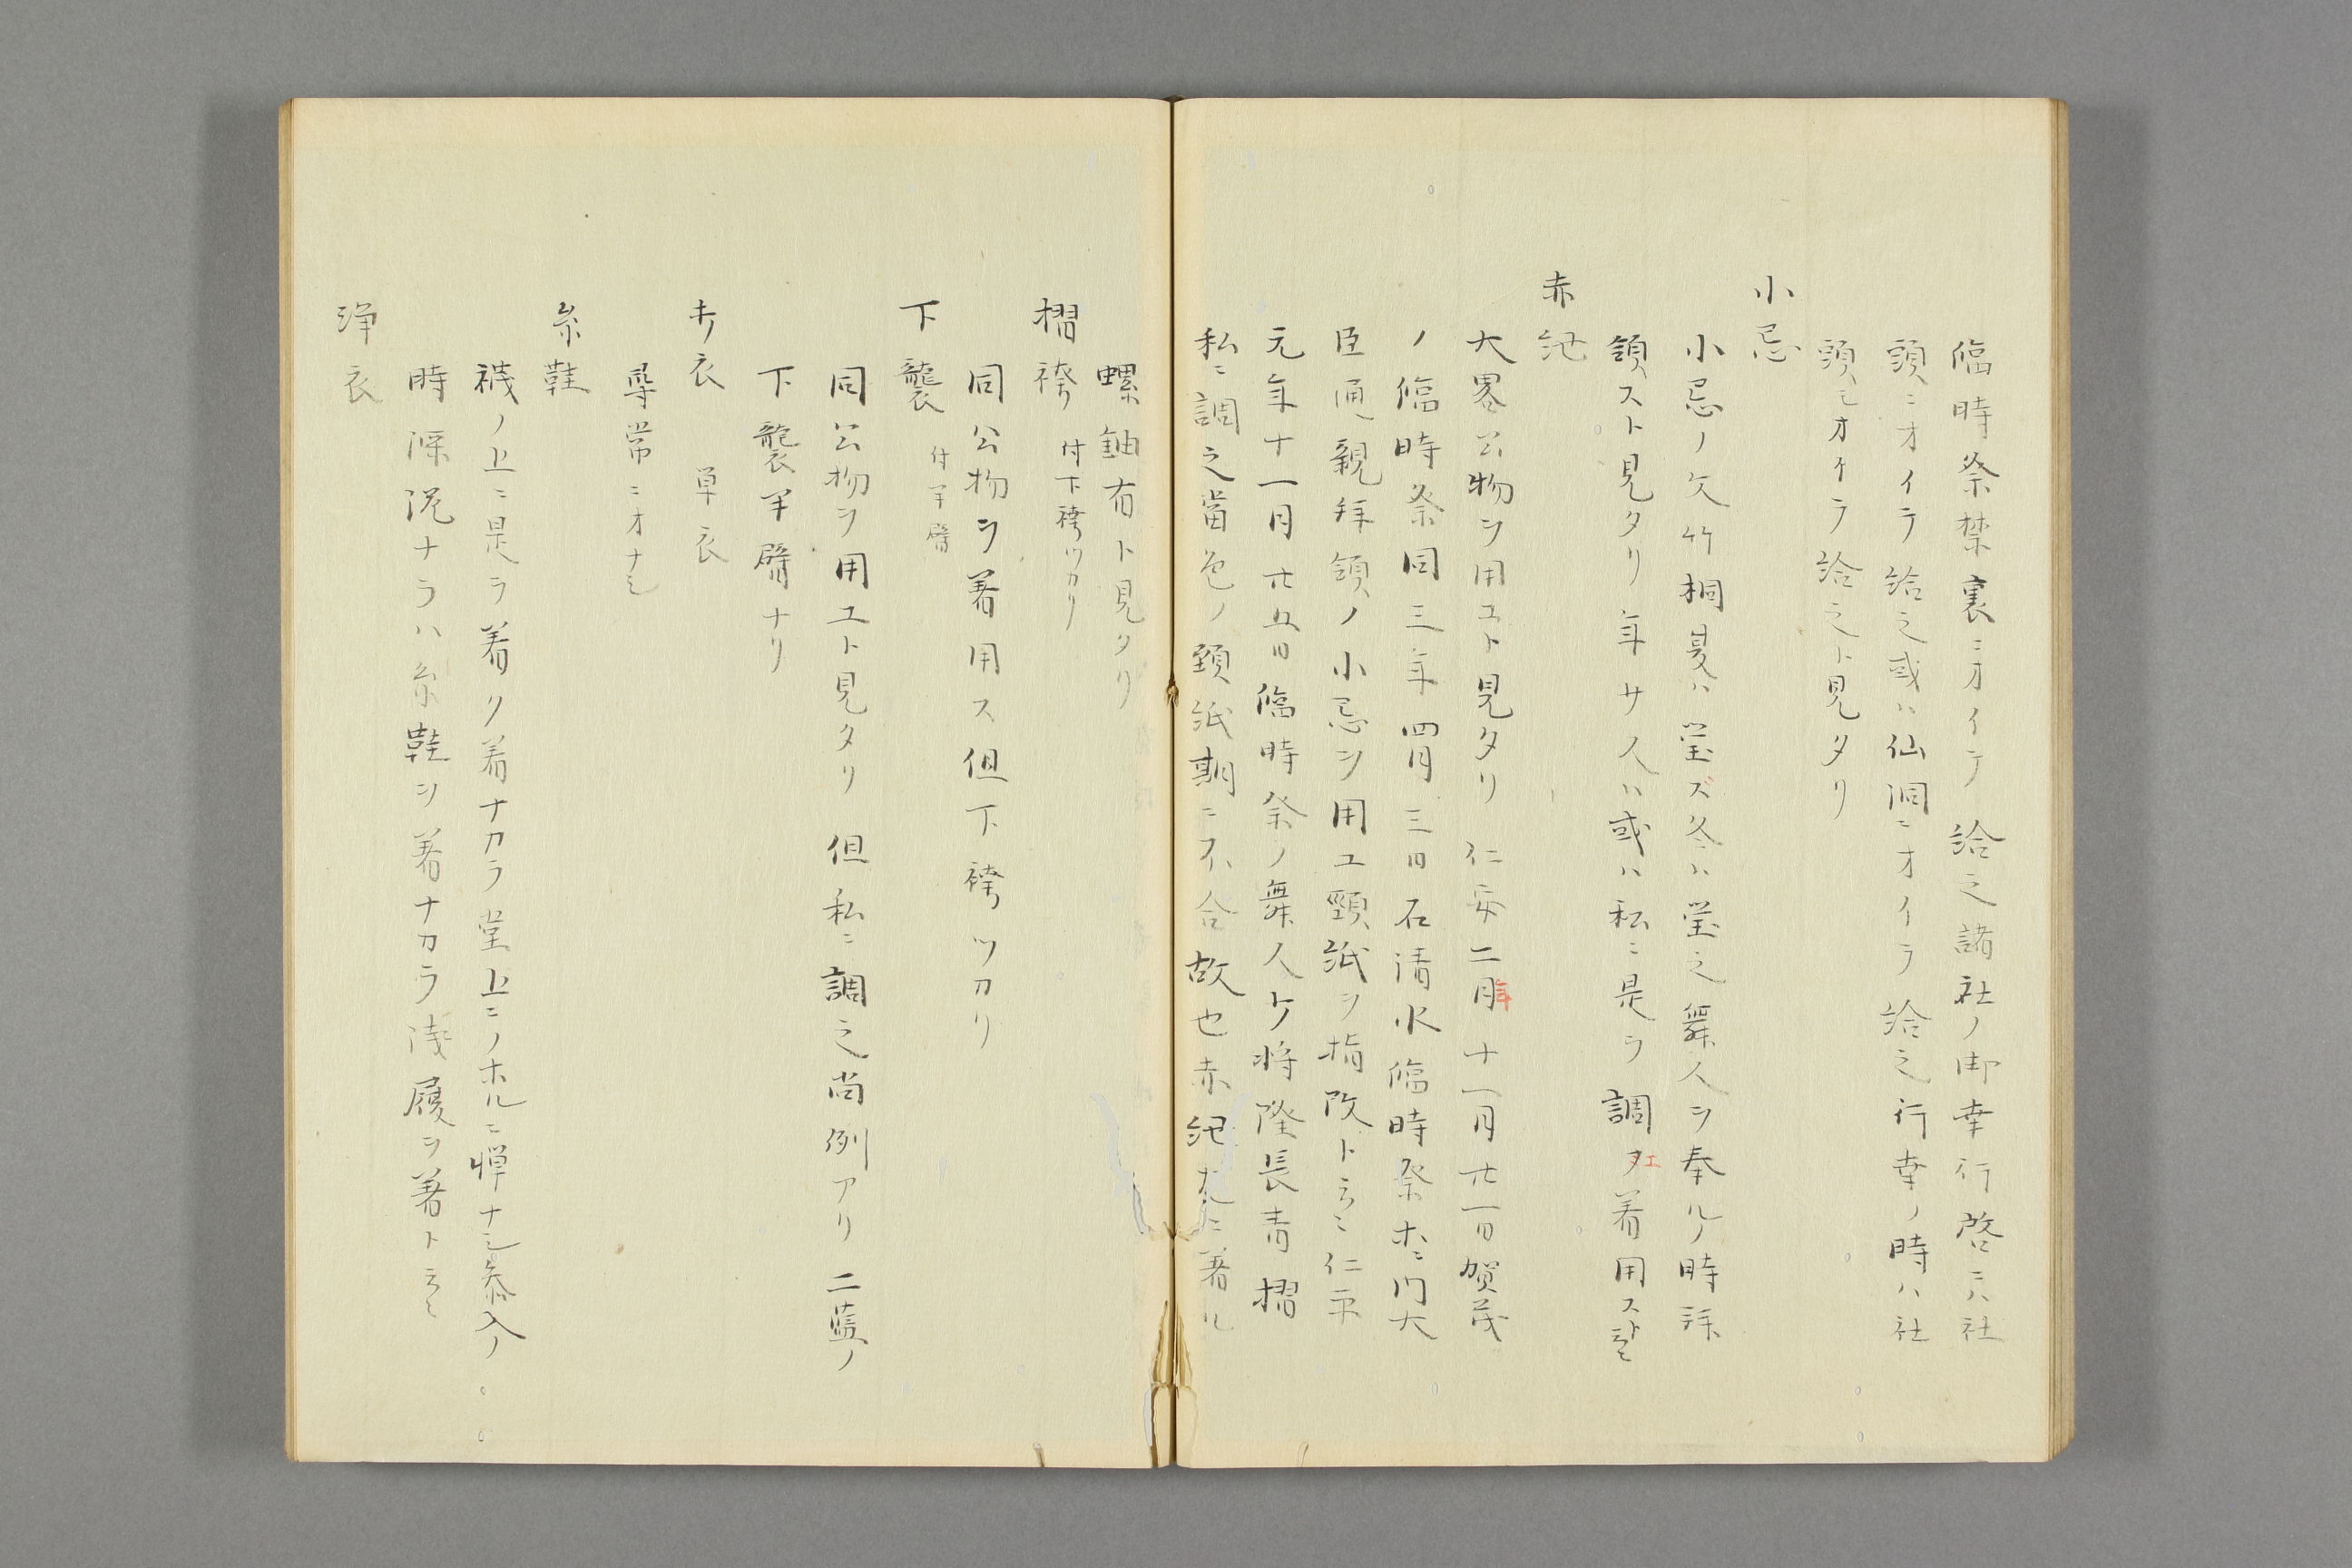 臨時祭禁裏ニオイテ給之諸社ノ御幸行啓ニハ社
頭ニオイテ給之或ハ仙洞ニオイテ給之行幸ノ時ハ社
頭ニオイテ給之ト見タリ
小忌
小忌ノ文竹桐夏ハ瑩ズ冬ハ瑩之舞人ヲ奉ル時拝
領スト見タリ年サ人ハ或ハ私ニ是ヲ調タ着用ス
エ
赤紐
大畧公物ヲ用ユト見タリ仁安二月十一月廿一日賀茂
年
ノ臨時祭同三年四月三日石清水臨時祭ホニ門大
臣通親拝領ノ小忌ヲ用ユ頸紙ヲ指改ト云々仁平
元年十一月廿五日臨時祭ノ舞人少将隆長青摺
私ニ調之當色ノ頸紙期ニ不合故也赤紐左ニ著ル
螺鈿有ト見タリ
摺袴 付下袴ツカリ
同公物ヲ着用ス但下袴ツカリ
下襲 付半臂
同公物ヲ用ユト見タリ 但私ニ調之尚例アリ二藍ノ
下襲半臂ナリ
単衣
尋常ニオナシ
糸鞋
襪ノ上ニ是ヲ着ク着ナカラ堂上ニノホルニ憚ナシ参入ノ
時深泥ナラハ糸鞋ヲ着ナカラ浅履ヲ着ト云々
浄衣